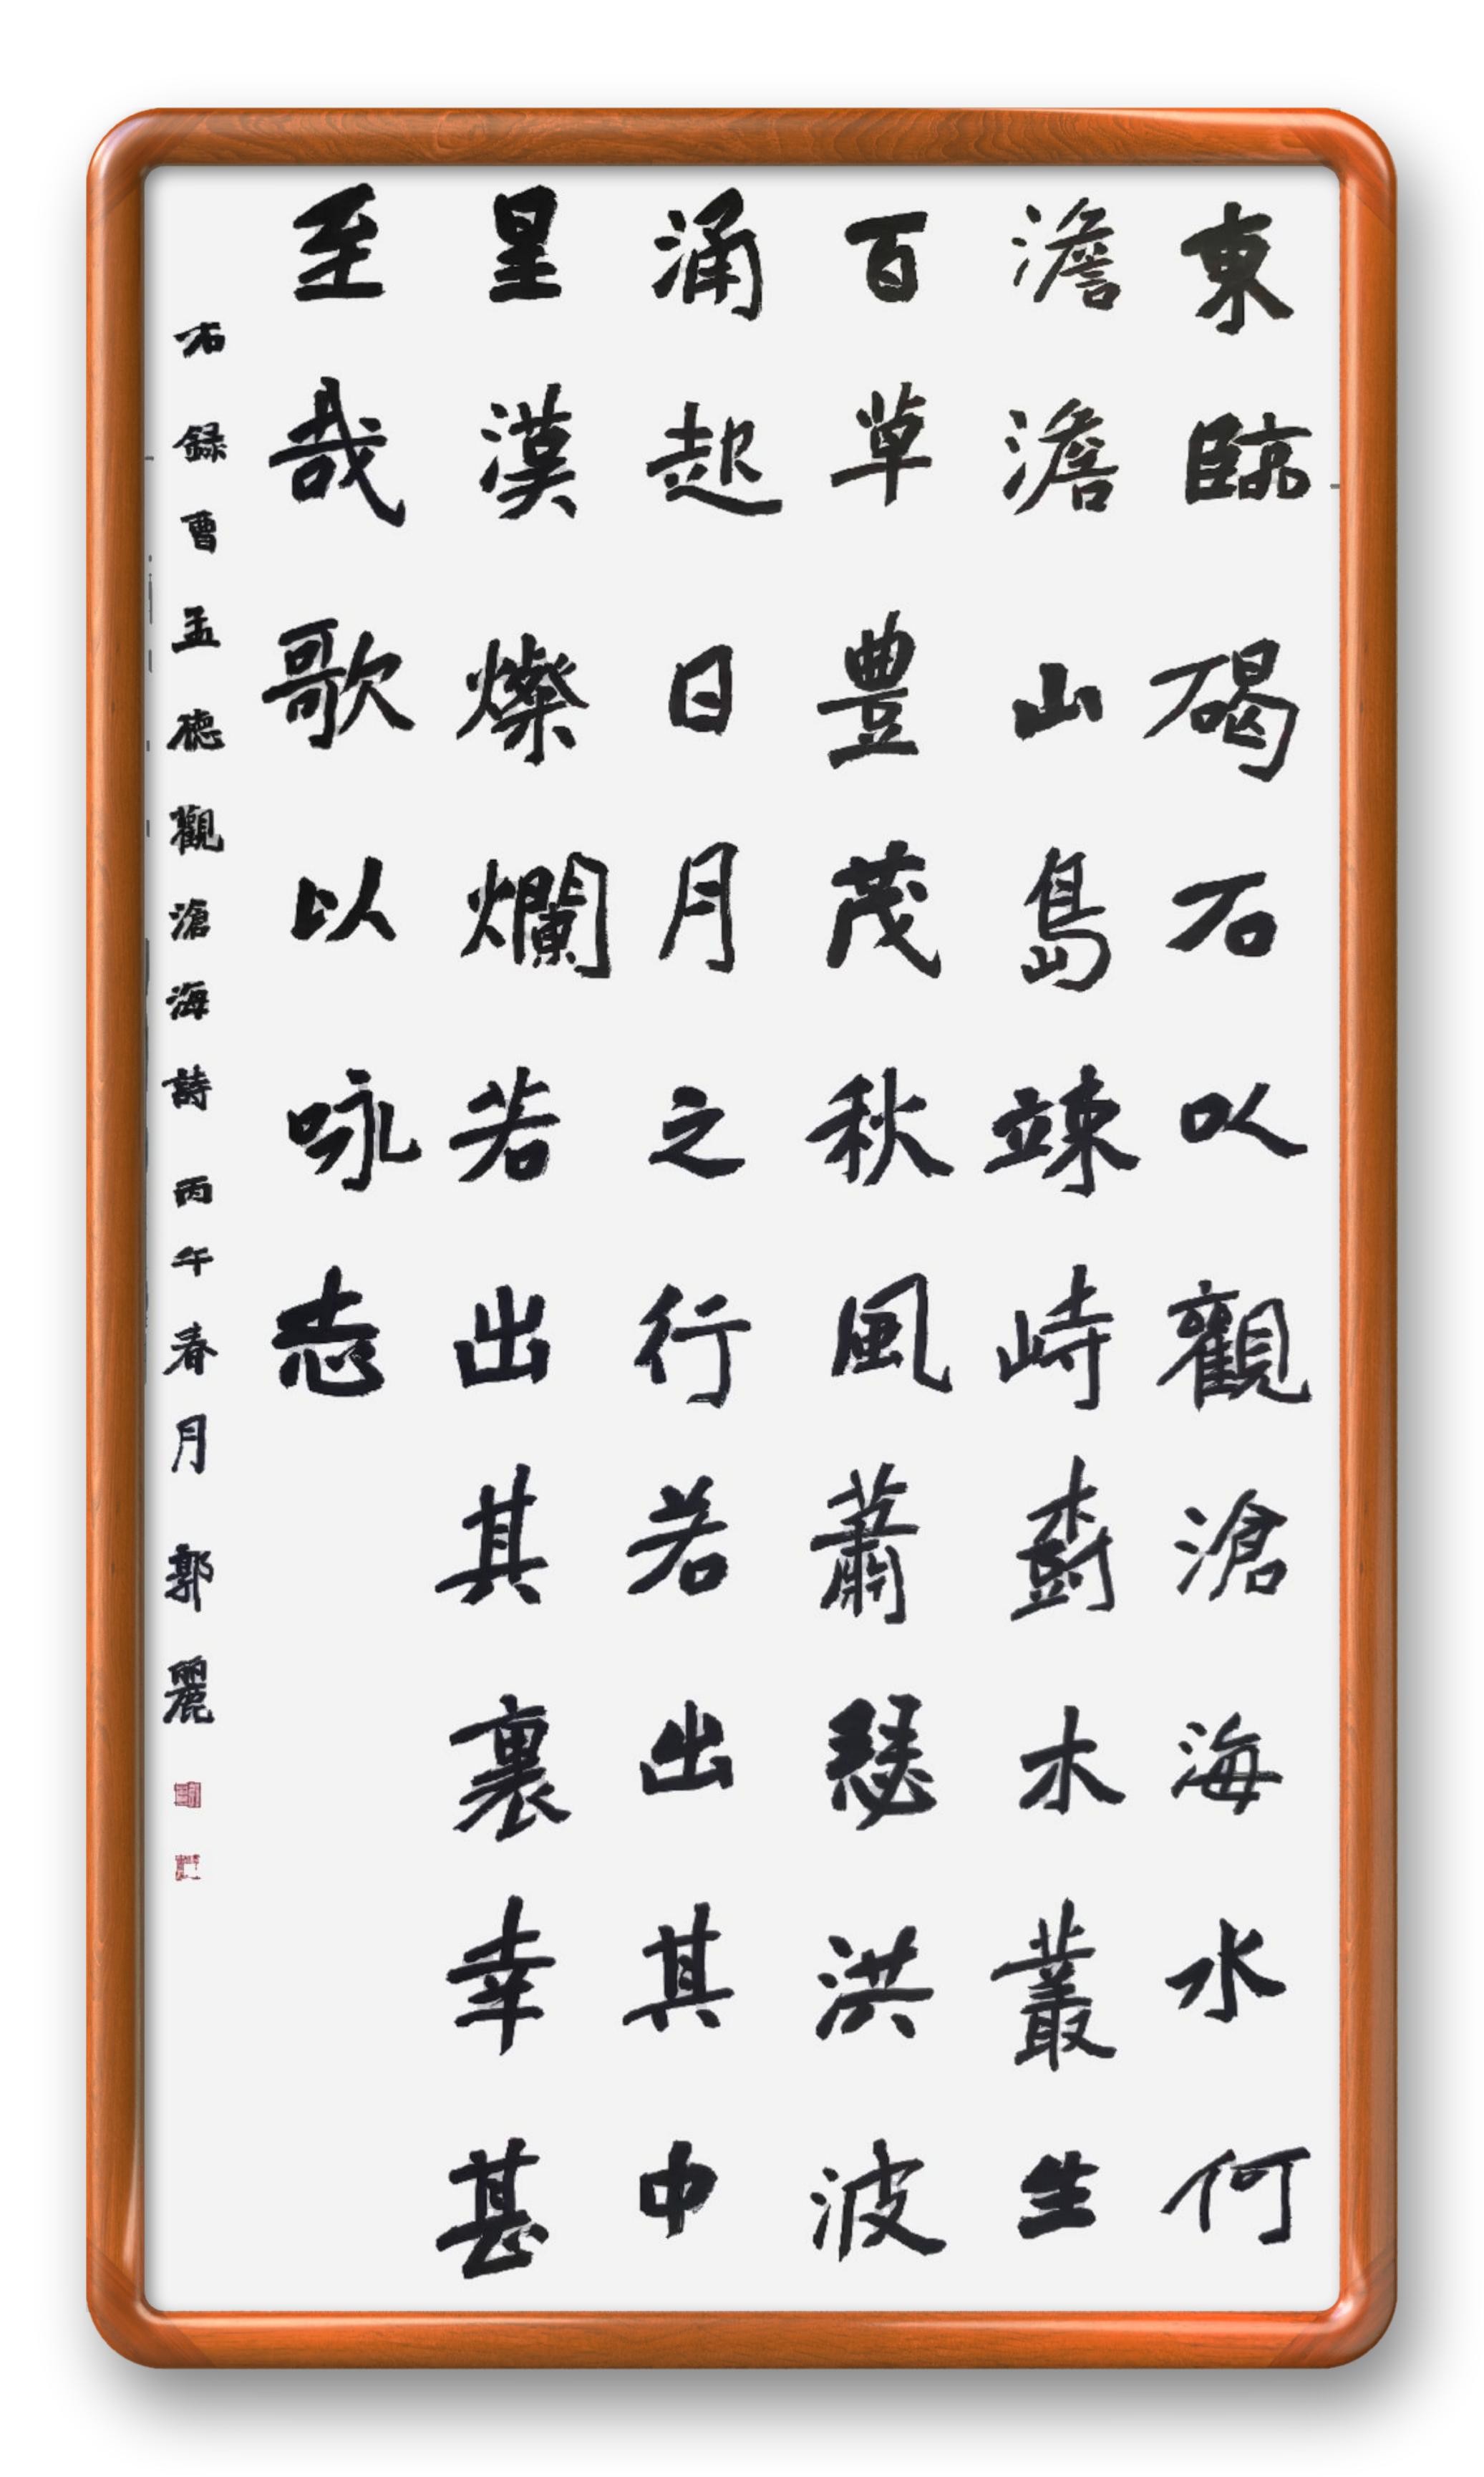 東臨碣石以觀滄海水何
澹澹山島竦峙樹木叢生
百草豊茂秋風蕭瑟洪波
涌起日月之行若出其中
星漢燦爛若出其裏幸甚
至哉歌以咏志
右録曹孟德觀滄海詩 丙午春月 郭麗